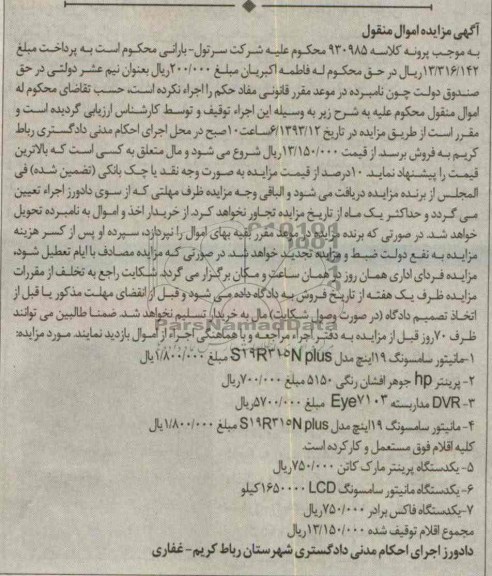 آگهی مزایده اموال منقول
به موجب پرونه کلاسه ۹۳۰۹۸۵ محکوم علیه شرکت سرتول-بارانی محکوم است به پرداخت مبلغ
۱۳/۳۱۶/۱۴۲ریال در حق محکوم له فاطمه اکبریان مبلغ ۲۰۰/۰۰۰ریال بعنوان نیم عشر دولتی در حق
صندوق دولت چون نامبرده در موعد مقرر قانونی مفاد حکم را اجراء نکرده است، حسب تقاضای محکوم له
اموال منقول محکوم علیه به شرح زیر به وسیله این اجراء توقیف و توسط کارشناس ارزیابی گردیده است و
مقرر است از طریق مزایده در تاریخ ۶/۱۳۹۳/۱۲ساعت۱۰صبح در محل اجرای احکام مدنی دادگستری رباط
کریم به فروش برسد. از قیمت ۱۳/۱۵۰/۰۰۰ریال شروع می شود و مال متعلق به کسی است که بالاترین
قیمت را پیشنهاد نماید. ۱۰درصد از قیمت مزایده به صورت وجه نقد یا چک بانکی (تضمین شده) فی
المجلس از برنده مزایده دریافت می شود و الباقی وجه مزایده ظرف مهلتی که از سوی دادورز اجراء تعیین
می گردد و حداکثر یک ماه از تاریخ مزایده تجاوز نخواهد کرد. از خریدار اخذ و اموال به نامبرده تحویل
خواهد شد. در صورتی که برنده مزایده در موعد مقرر بقیه بهای اموال را نپردازد، سپرده او پس از کسر هزینه
مزایده به نفع دولت ضبط و مزایده تجدید خواهد شد. در صورتی که مزایده مصادف با ایام تعطیل شود،
مزایده فردای اداری همان روز در همان ساعت و مکان برگزار می گردد. شکایت راجع به تخلف از مقررات
مزایده ظرف یک هفته از تاریخ فروش به دادگاه داده می شود و قبل از انقضای مهلت مذکور یا قبل از
اتخاذ تصمیم دادگاه (در صورت وصول شکایت) مال به خریدار تسلیم نخواهد شد. ضمنا طالبین می توانند
ظرف ۷۰روز قبل از مزایده به دفتر اجراء مراجعه و با هماهنگی اجراء از اموال بازدید نمایند. مورد مزایده:
ParsNamadData
۱-مانیتور سامسونگ ۱۹اینچ مدل S۱۹R۳۱۵N plus مبلغ ۱/۸۰۰/۰۰۰ریال
۲- پرینتر hp جوهر افشان رنگی ۵۱۵۰ مبلغ ۷۰۰/۰۰۰ریال
۳- DVR مداربسته Eye۷۱۰۳ مبلغ ۵۷۰۰/۰۰۰ریال
۴- مانیتور سامسونگ ۱۹اینچ مدل S۱۹R۳۱۵N plus مبلغ ۱/۸۰۰/۰۰۰ریال
کلیه اقلام فوق مستعمل و کارکرده است.
۵- یکدستگاه پرینتر مارک کاتن ۷۵۰/۰۰۰ریال
۶- یکدستگاه مانیتور سامسونگ LCD ۱۶۵۰۰۰۰کیلو
۷-یکدستگاه فاکس برادر ۷۵۰/۰۰۰ریال
مجموع اقلام توقیف شده ۱۳/۱۵۰/۰۰۰ریال
دادورز اجرای احکام مدنی دادگستری شهرستان رباط کریم- غفاری